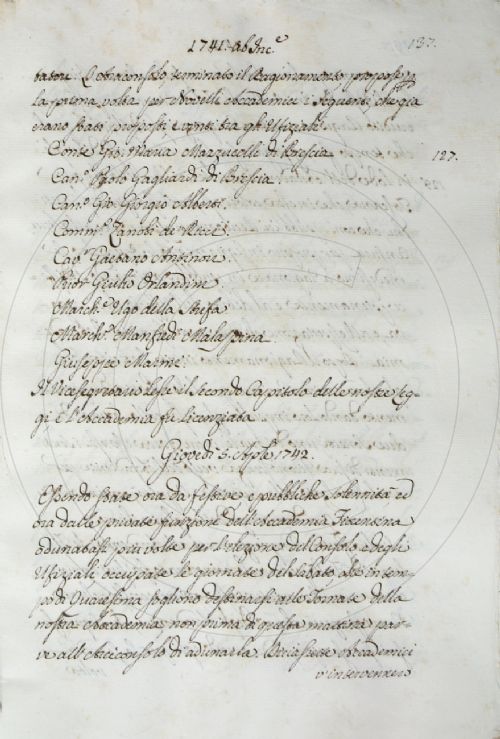 1741. ab Inc.e
137.
tatori. L'Arciconsolo, terminato il Ragionamento propose p
la prima volta per Novelli Accademici i seguenti, che già
erano stati proposti e vinti tra gli Ufiziali.
Conte Gio: Maria Mazzucelli di Brescia
127.
Can.o Paolo Gagliardi di Brescia.
Can.o Gio: Giorgio Alberti.
Comm.e Zanobi de Ricci.
Cav.e Gaetano Antinori.
Prior Giulio Orlandini
March.e Ugo della Stufa
March.e Manfredi Malaspina
Giuseppe Marmi.
Il Vicesegretario lesse il secondo Capitolo delle nostre leg-
gi e l'Accademia fu licenziata
Giovedì 5. Aple 1742.
Essendo state ora da festive e pubbliche solennità ed
ora dalle private funzione dell'Accademia Fiorentina
adunatasi più volte per l'elezione del Consolo e degli
Ufiziali occupate le giornate del sabato che in tem-
po di Quaresima sogliono destinarsi alle Tornate della
nostra Accademia non prima di questa mattina par-
ve all'Arciconsolo di adunarla. Diciassette Accademici
v'intervennero